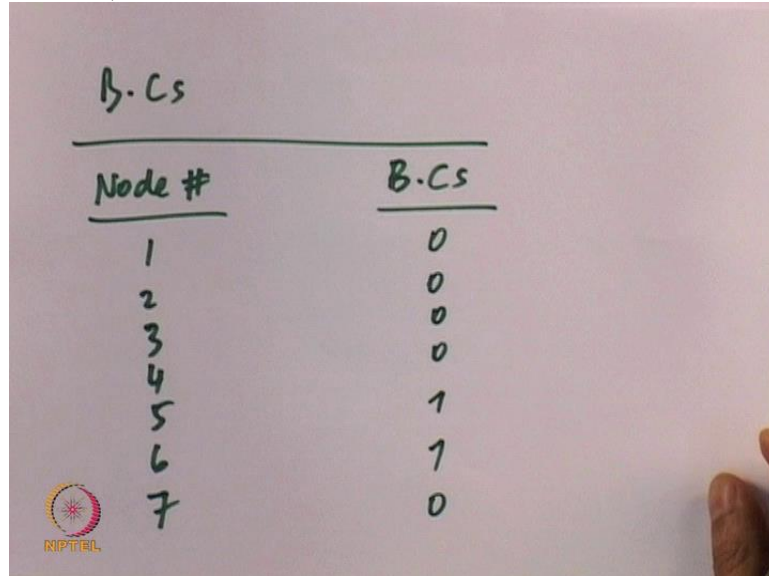 B.Cs
Node # B.Cs
1 0
2 0
3 0
4 0
5 1
6 1
7 0
NPTEL